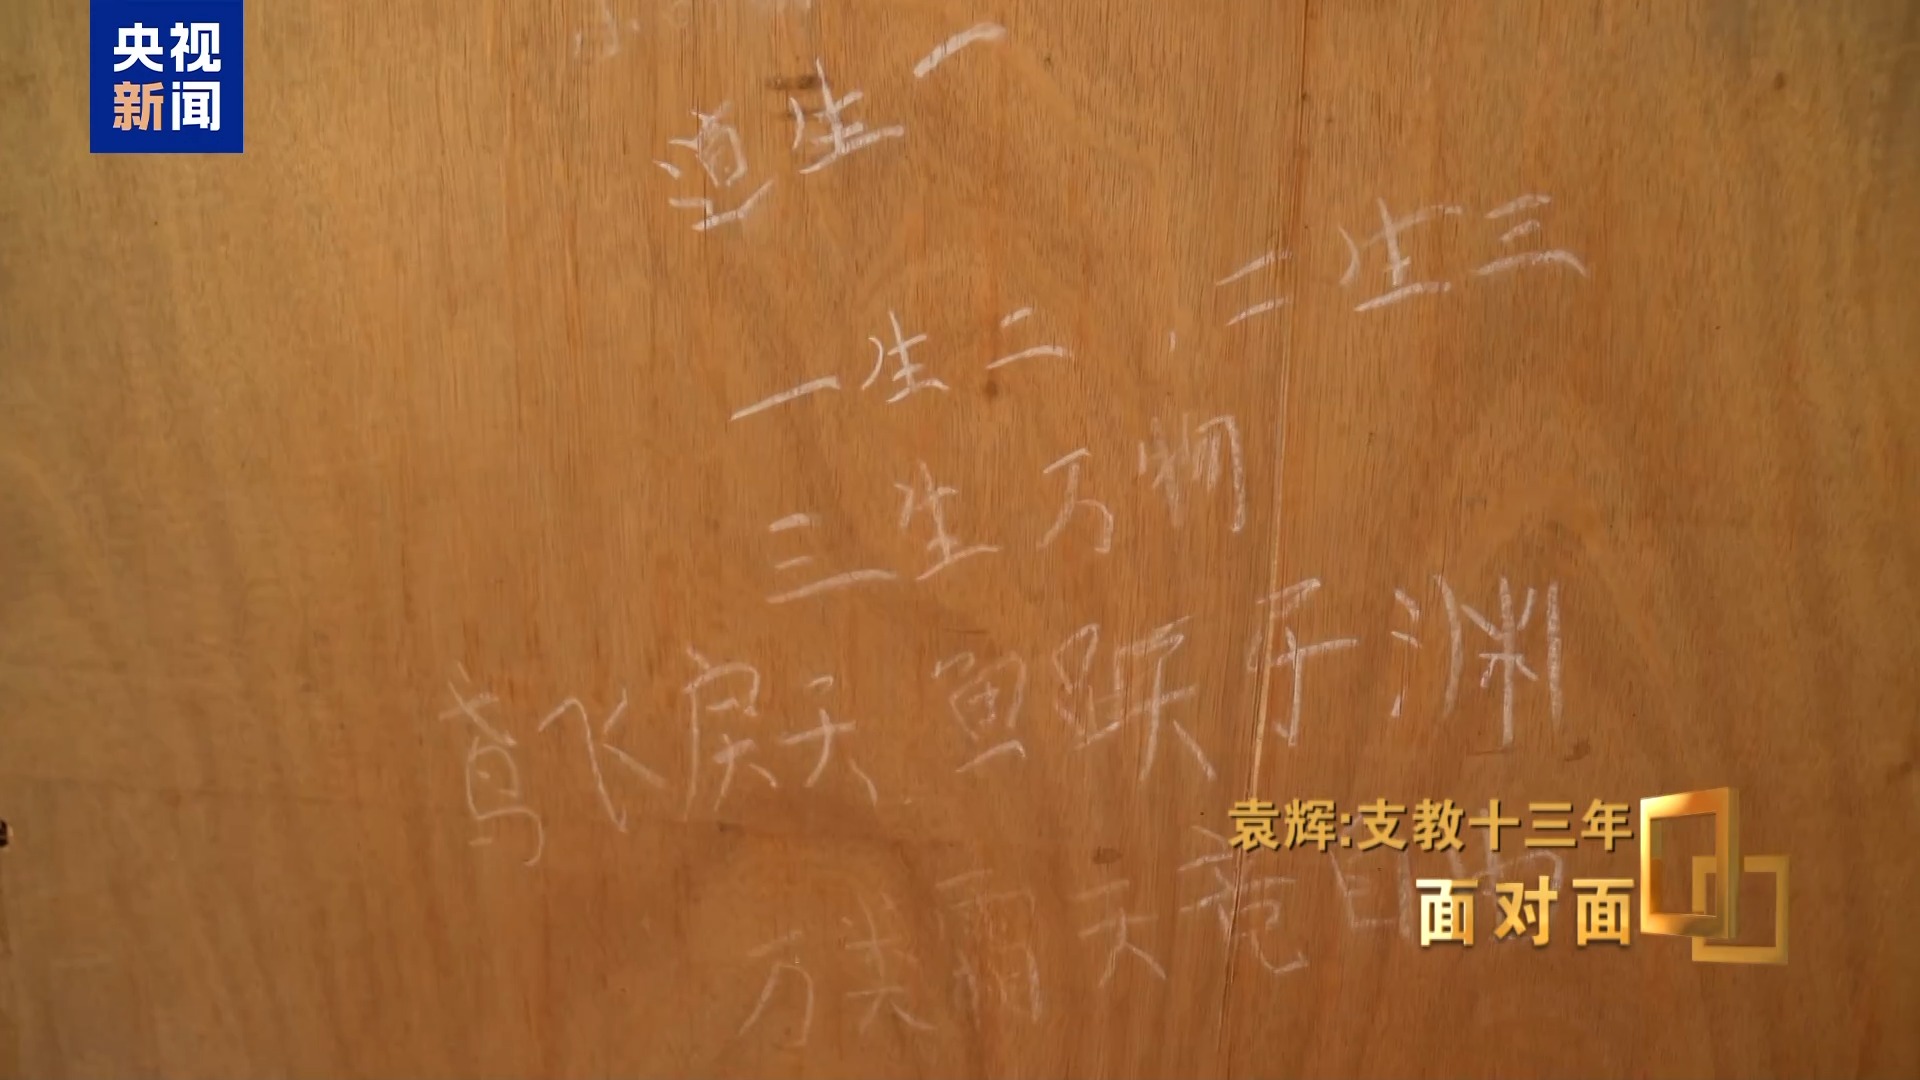 央视
新闻
道生一
一生二，二生三
三生万物
鸢飞戾天 鱼跃于渊
万类霜天竞自由
袁辉:支教十三年
面对面